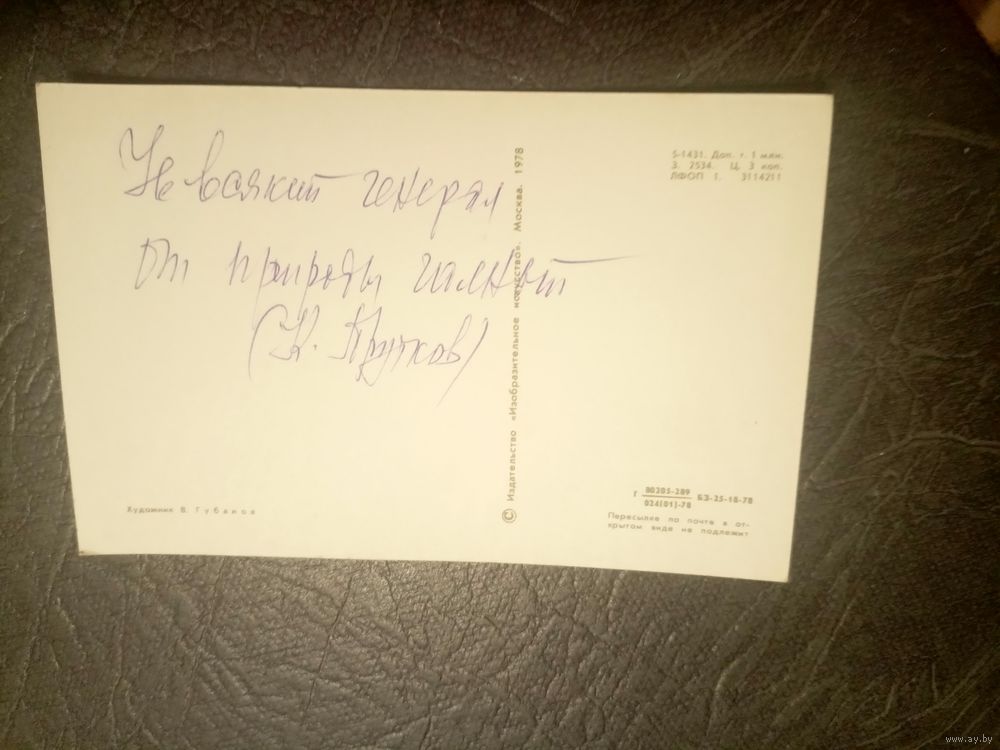 Не всякий генерал
от природы
(К. Прутков)
Художник В. Губанов
© Издательство «Изобразительное искусство». Москва. 1978
5-1431. Доп. т. 1 млн.
З. 2534. Ц. 3 коп.
ЛФОП 1. 3114211
Г 80205-289
024(01)-78 БЗ-25-18-78
Пересылке по почте в от-
крытом виде не подлежит
www.ay.by